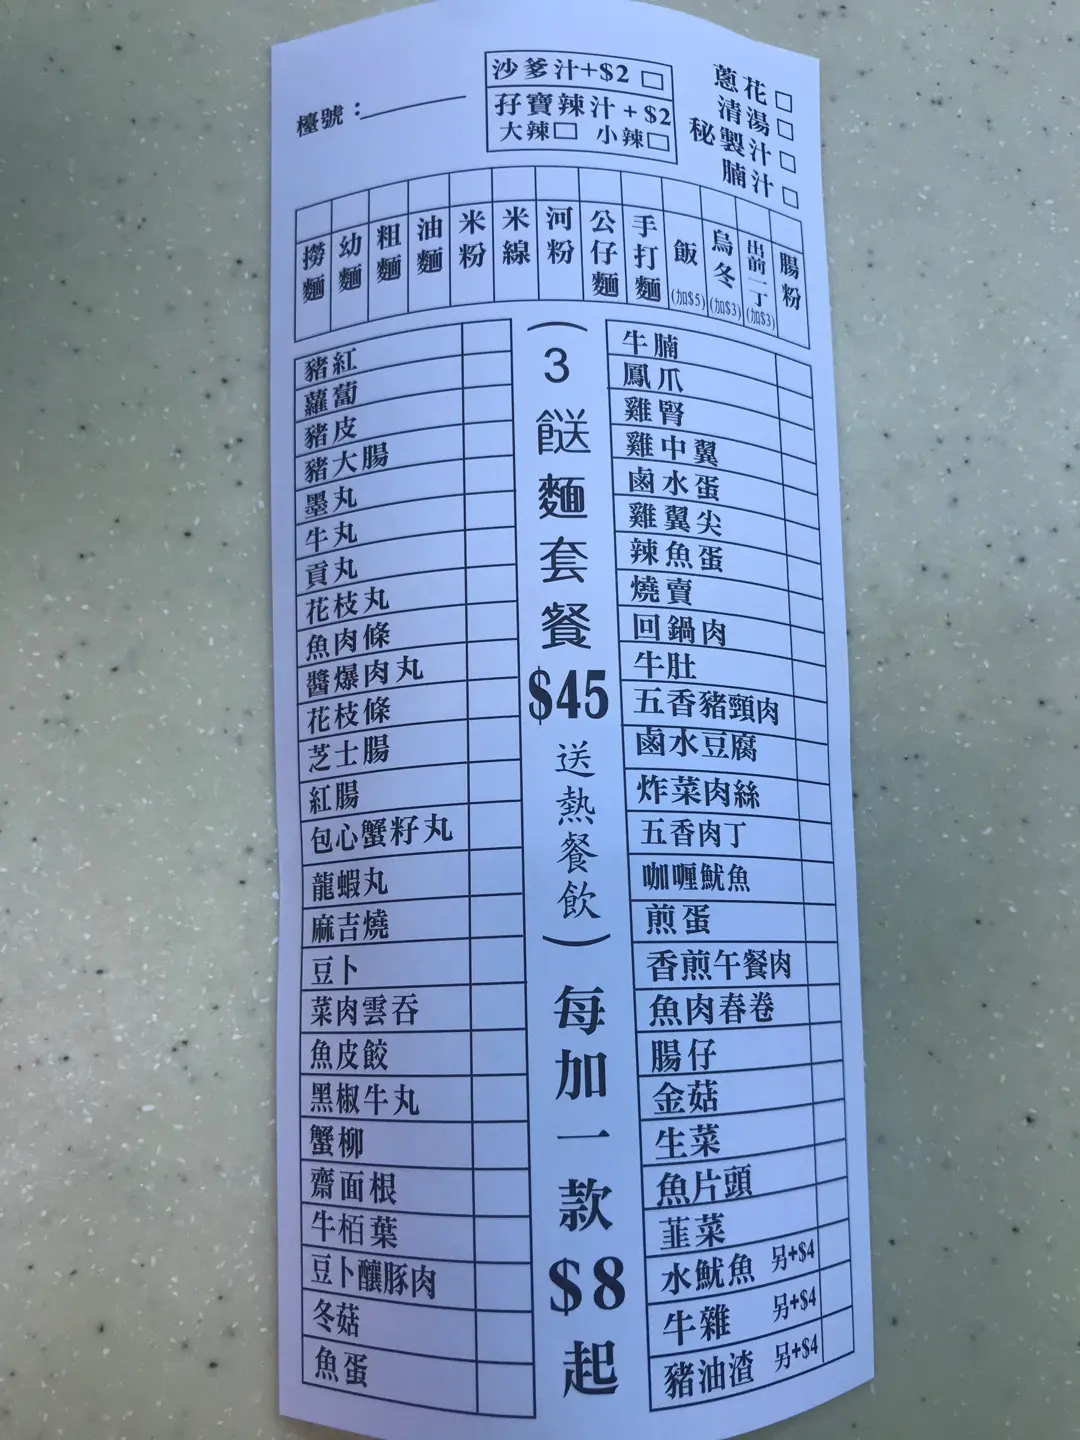 檯號：
沙爹汁+$2
孖寶辣汁+$2
大辣 小辣
蔥花
清湯
秘製汁
腩汁
撈麵
幼麵
粗麵
油麵
米粉
米線
河粉
公仔麵
手打麵
飯(加$5)
烏冬(加$3)
出前一丁(加$3)
腸粉
豬紅
蘿蔔
豬皮
豬大腸
墨丸
牛丸
貢丸
花枝丸
魚肉條
醬爆肉丸
花枝條
芝士腸
紅腸
包心蟹籽丸
龍蝦丸
麻吉燒
豆卜
菜肉雲吞
魚皮餃
黑椒牛丸
蟹柳
齋面根
牛栢葉
豆卜釀豚肉
冬菇
魚蛋
(3餸麵套餐$45送熱餐飲)每加一款$8起
牛腩
鳳爪
雞腎
雞中翼
鹵水蛋
雞翼尖
辣魚蛋
燒賣
回鍋肉
牛肚
五香豬頸肉
鹵水豆腐
炸菜肉絲
五香肉丁
咖喱魷魚
煎蛋
香煎午餐肉
魚肉春卷
腸仔
金菇
生菜
魚片頭
韮菜
水魷魚 另+$4
牛雜 另+$4
豬油渣 另+$4